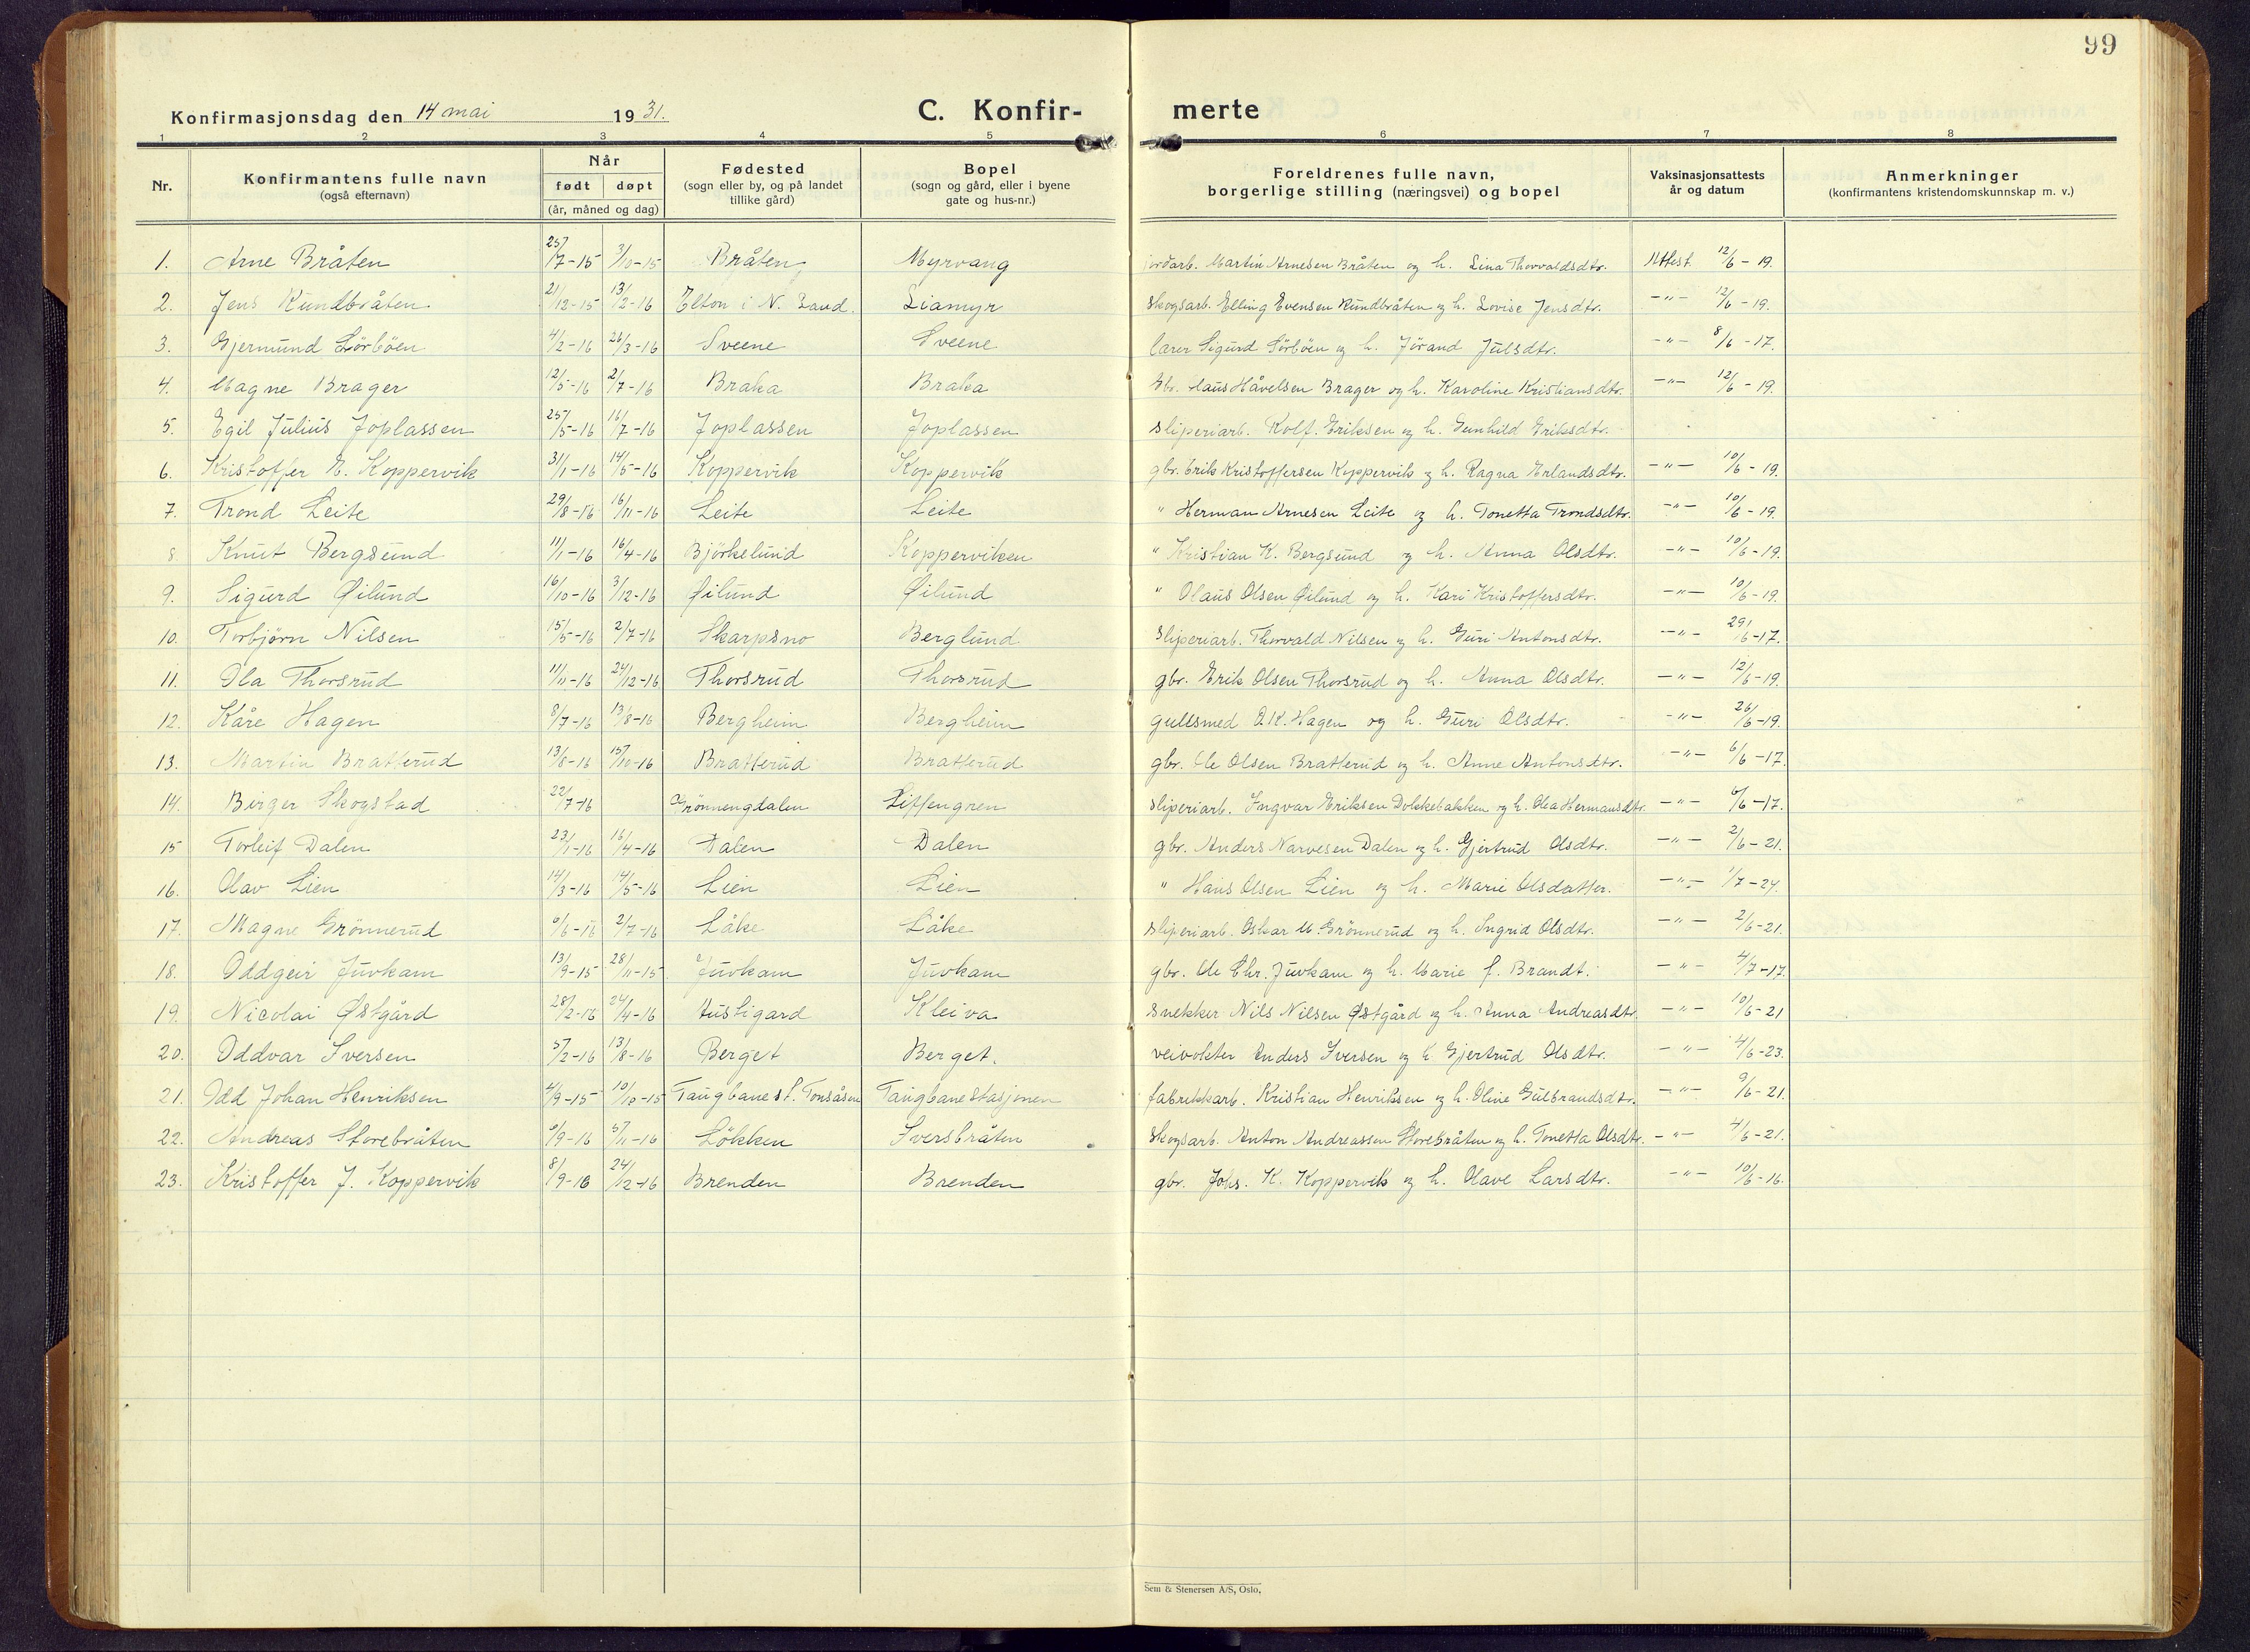 99
Konfirmasjonsdag den 14 mai 1931. C. Konfir- merte
1 2 3 4 5 6 7 8
Nr. Konfirmantens fulle navn (også efternavn) Når født døpt (år, måned og dag) Fødested (sogn eller by, og på landet tillike gård) Bopel (sogn og gård, eller i byene gate og hus-nr.) Foreldrenes fulle navn, borgerlige stilling (næringsvei) og bopel Vaksinasjonsattests år og datum Anmerkninger (konfirmantens kristendomskunnskap m. v.)
1. Arne Bråten 25/7-15 3/10-15 Bråten Myrvang jordarb. Martin Arnesen Bråten og h. Lina Thorvaldsdtr. Attest 12/6-19.
2. Jens Rundbråten 21/12-15 13/2-16 Elton i N. Land. Liamyr skogsarb. Elling Evensen Rundbråten og h. Lovise Jensdtr. -"- 12/6-19.
3. Gjermund Sörböen 4/2-16 26/3-16 Sveene Sveene lærer Sigurd Sörböen og h. Jörand Julsdtr. -"- 8/6-17.
4. Magne Brager 12/5-16 2/7-16 Braka Braka gbr. Claus Håvelsen Brager og h. Karoline Kristiansdtr. -"- 12/6-19.
5. Egil Julius Joplassen 25/5-16 16/7-16 Joplassen Joplassen sliperiarb. Rolf. Eriksen og h. Gunhild Eriksdtr.
6. Kristoffer E. Koppervik 31/1-16 14/5-16 Koppervik Koppervik gbr. Erik Kristoffersen Koppervik og h. Ragna Erlandsdtr. -"- 10/6-19.
7. Trond Leite 29/8-16 16/11-16 Leite Leite " Herman Arnesen Leite og h. Tonetta Trondsdtr. -"- 10/6-19.
8. Knut Bergsund 11/1-16 16/4-16 Björkelund Kopperviken " Kristian K. Bergsund og h. Anna Olsdtr. -"- 10/6-19.
9. Sigurd Øilund 16/10-16 3/12-16 Øilund Øilund " Olaus Olsen Øilund og h. Kari Kristoffersdtr. -"- 10/6-19.
10. Torbjørn Nilsen 15/5-16 2/7-16 Skarpsno Berglund sliperiarb. Thorvald Nilsen og h. Guri Antonsdtr. -"- 29/6-17.
11. Ola Thorsrud 11/11-16 24/12-16 Thorsrud Thorsrud gbr. Erik Olsen Thorsrud og h. Anna Olsdtr. -"- 12/6-19.
12. Kåre Hagen 8/7-16 13/8-16 Bergheim Bergheim gullsmed O.K. Hagen og h. Guri Olsdtr. -"- 26/6-19.
13. Martin Bratterud 13/8-16 15/10-16 Bratterud Bratterud gbr. Ole Olsen Bratterud og h. Anne Antonsdtr. -"- 6/6-17.
14. Birger Skogstad 22/7-16 Grönnengdalen sliperiarb. Ingvar Eriksen Dokkebakken og h. Olea Hermansdtr. -"- 6/6-17.
15 Torleif Dalen 23/1-16 16/4-16 Dalen Dalen gbr. Anders Narvesen Dalen og h. Gjertrud Olsdtr. -"- 2/6-21.
16. Olav Lien 14/3-16 14/5-16 Lien Lien " Hans Olsen Lien og h. Marie Olsdatter. -"- 1/7-24.
17. Magne Grönnerud 6/6-16 2/7-16 Låke Låke sliperiarb. Oskar M. Grönnerud og h. Ingrid Olsdtr. -"- 2/6-21.
18. Oddgeir Juvkam 13/9-15 28/11-15 Juvkam Juvkam gbr. Ole Chr. Juvkam og h. Marie f. Brandt. -"- 4/7-17.
19. Nicolai Østgård 28/2-16 24/4-16 Austigard Kleiva snekker Nils Nilsen Østgård og h. Anna Andreasdtr. -"- 10/6-21
20. Oddvar Iversen 5/2-16 13/8-16 Berget Berget. veivokter Anders Iversen og h. Gjertrud Olsdtr. -"- 4/6-23.
21. Odd Johan Henriksen 4/9-15 10/10-15 Taugbanest. Tonsåsen Taugbanestasjonen fabrikkarb. Kristian Henriksen og h. Oline Gulbrandsdtr. -"- 9/6-21.
22. Andreas Storebråten 6/9-16 5/11-16 Lökken Iversbråten skogsarb. Anton Andreassen Storebråten og h. Tonetta Olsdtr. -"- 4/6-21.
23. Kristoffer J. Koppervik 8/9-16 24/12-16 Brenden Brenden gbr. Johs. K. Koppervik og h. Olave Larsdtr. -"- 10/6-16.
Sem & Stenersen A/S, Oslo.